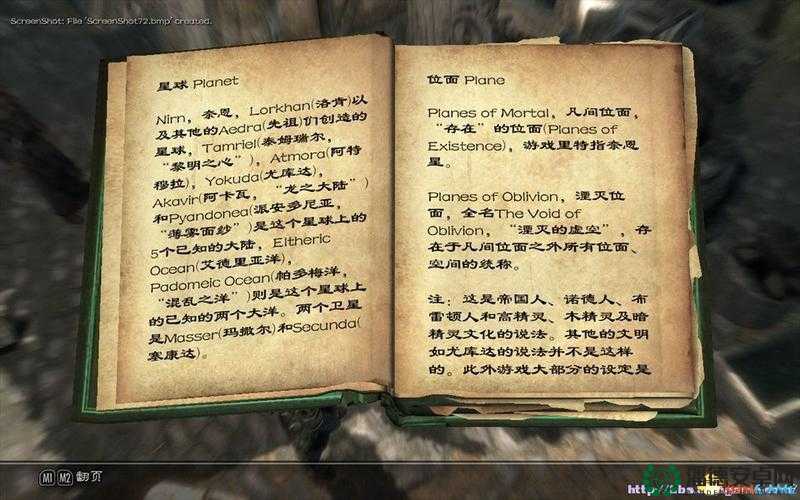 ScreenShot: File 'ScreenShot72.bmp' created.
星球 Planet
Nirn，奈恩，Lorkhan(洛肯)以
及其他的Aedra(先祖)们创造的
星球，Tamriel(泰姆瑞尔，
“黎明之心”)，Atmora(阿特
穆拉)，Yokuda(尤库达)，
Akavir(阿卡瓦，“龙之大陆”)
和Pyandonea(派安多尼亚，
“薄雾面纱”)是这个星球上的
5个已知的大陆，Eltheric
Ocean(艾德里亚洋)，
Padomeic Ocean(帕多梅洋，
“混乱之洋”)则是这个星球上
的已知的两个大洋。两个卫星
是Masser(玛撒尔)和Secunda(
塞康达)。
位面 Plane
Planes of Mortal，凡间位面，
“存在”的位面(Planes of
Existence)，游戏里特指奈恩
星。
Planes of Oblivion，湮灭位
面，全名The Void of
Oblivion，“湮灭的虚空”，存
在于凡间位面之外所有位面、
空间的统称。
注：这是帝国人、诺德人、布
雷顿人和高精灵、木精灵及暗
精灵文化的说法。其他的文明
如尤库达的说法并不是这样
的。此外游戏大部分的设定是
M1 M2 翻页